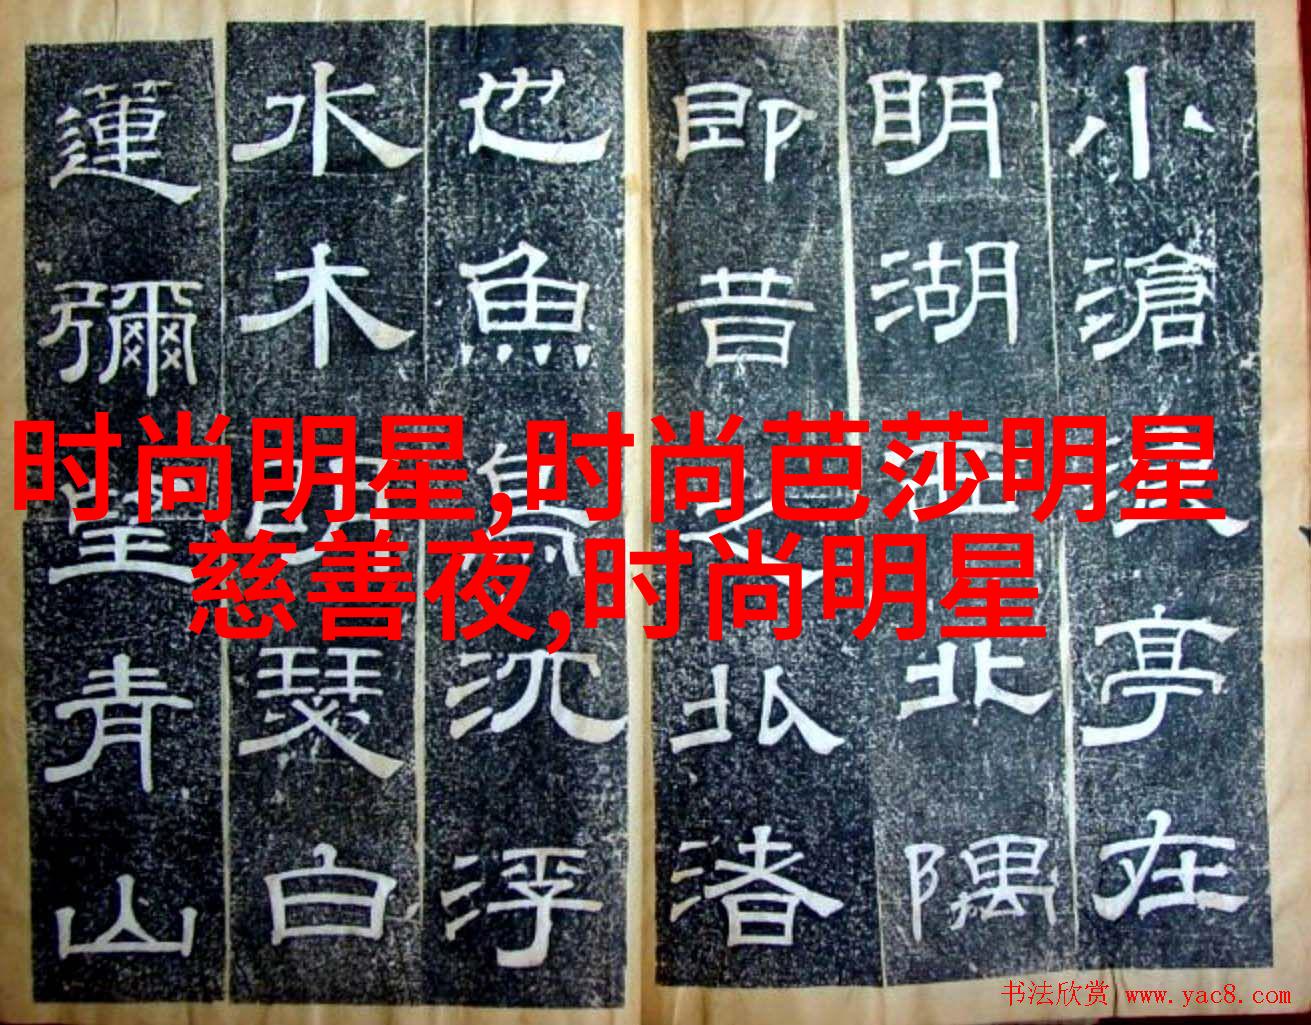 小滄浪亭在
明湖西北隅
即昔之北渚
也魚鳥沉浮
水木明瑟白
蓮彌望青山
时尚明星,时尚芭莎明星
慈善夜,时尚明星
书法欣赏 www.yac8.com